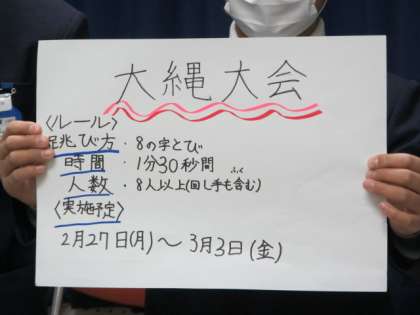 大縄大会
〈ルール〉
跳び方・8の字とび
時間・1分30秒間
人数・8人以上(回し手も含む)
ふく
〈実施予定〉
2月27日(月)～3月3日(金)